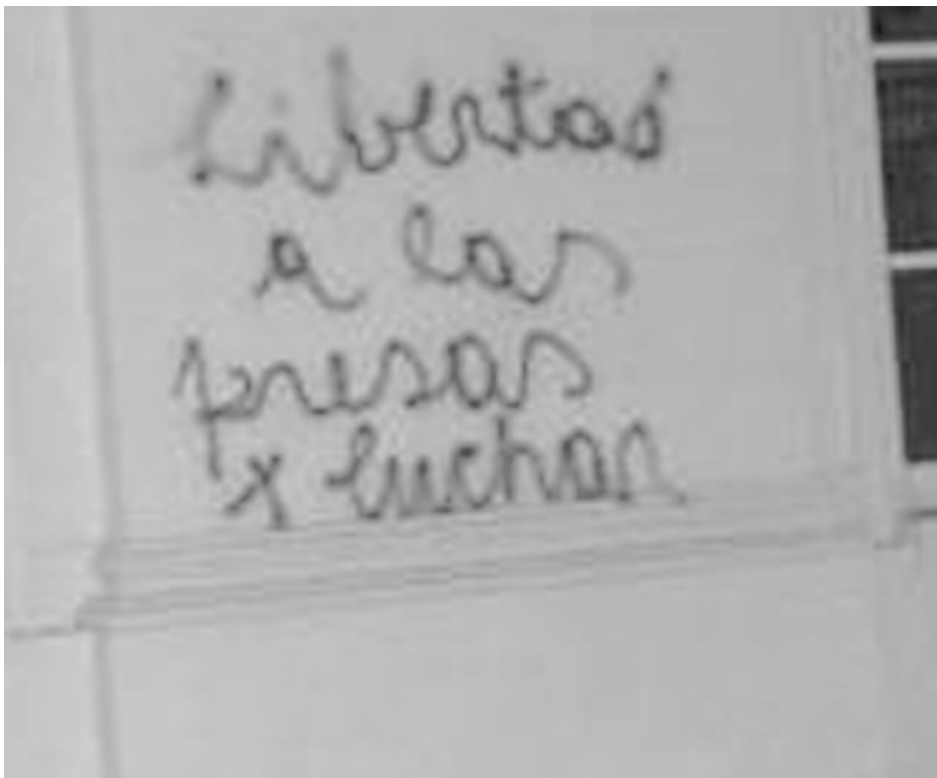 Libertad
a las
presas
x luchar